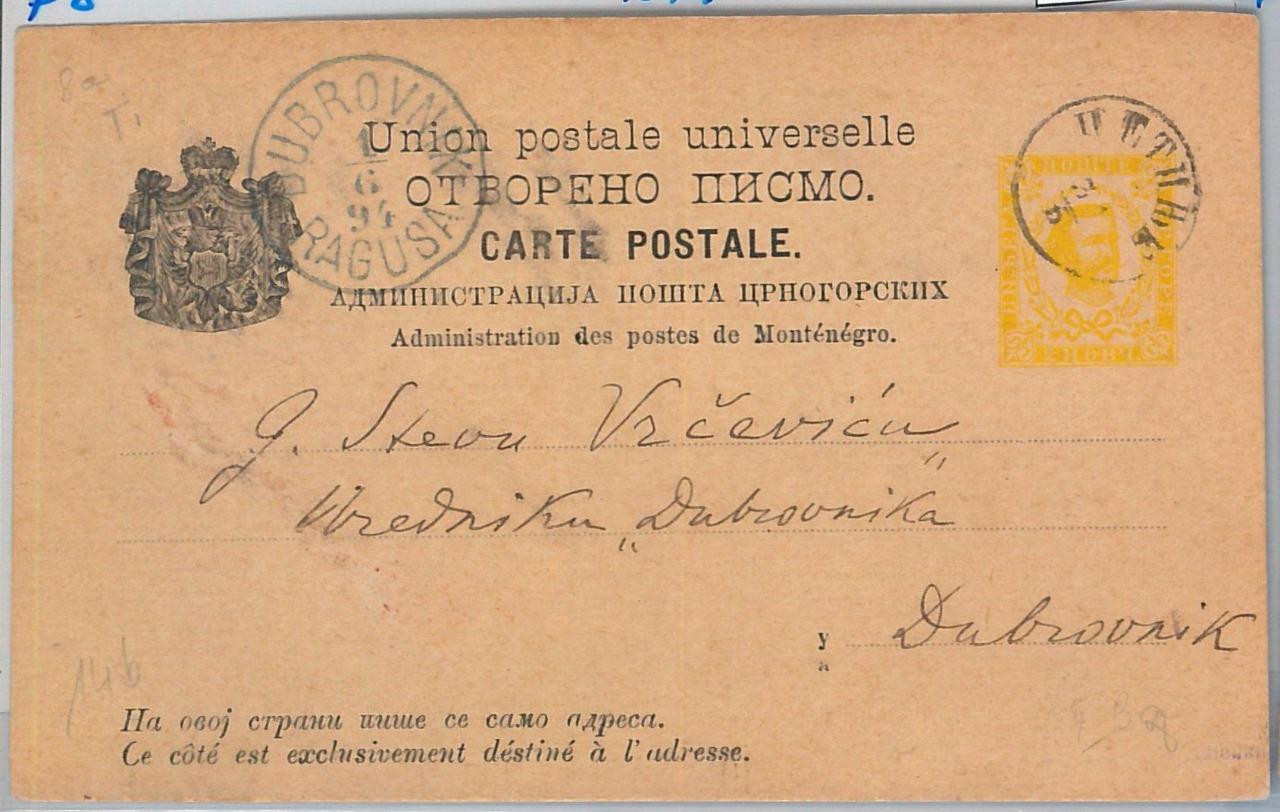 8a
T.
DUBROVNIK
1
6
94
RAGUSA
Union postale universelle
ОТВОРЕНО ПИСМО.
CARTE POSTALE.
АДМИНИСТРАЦИЈА ПОШТА ЦРНОГОРСКИХ
Administration des postes de Monténégro.
ЦЕТИЊЕ
ПОШТЕ
2 НОВЧ.
G. Stevu Vrčeviću
Uredniku „Dubrovnika"
у
à
Dubrovnik
14b
На овој страни пише се само адреса.
Ce côté est exclusivement déstiné à l'adresse.